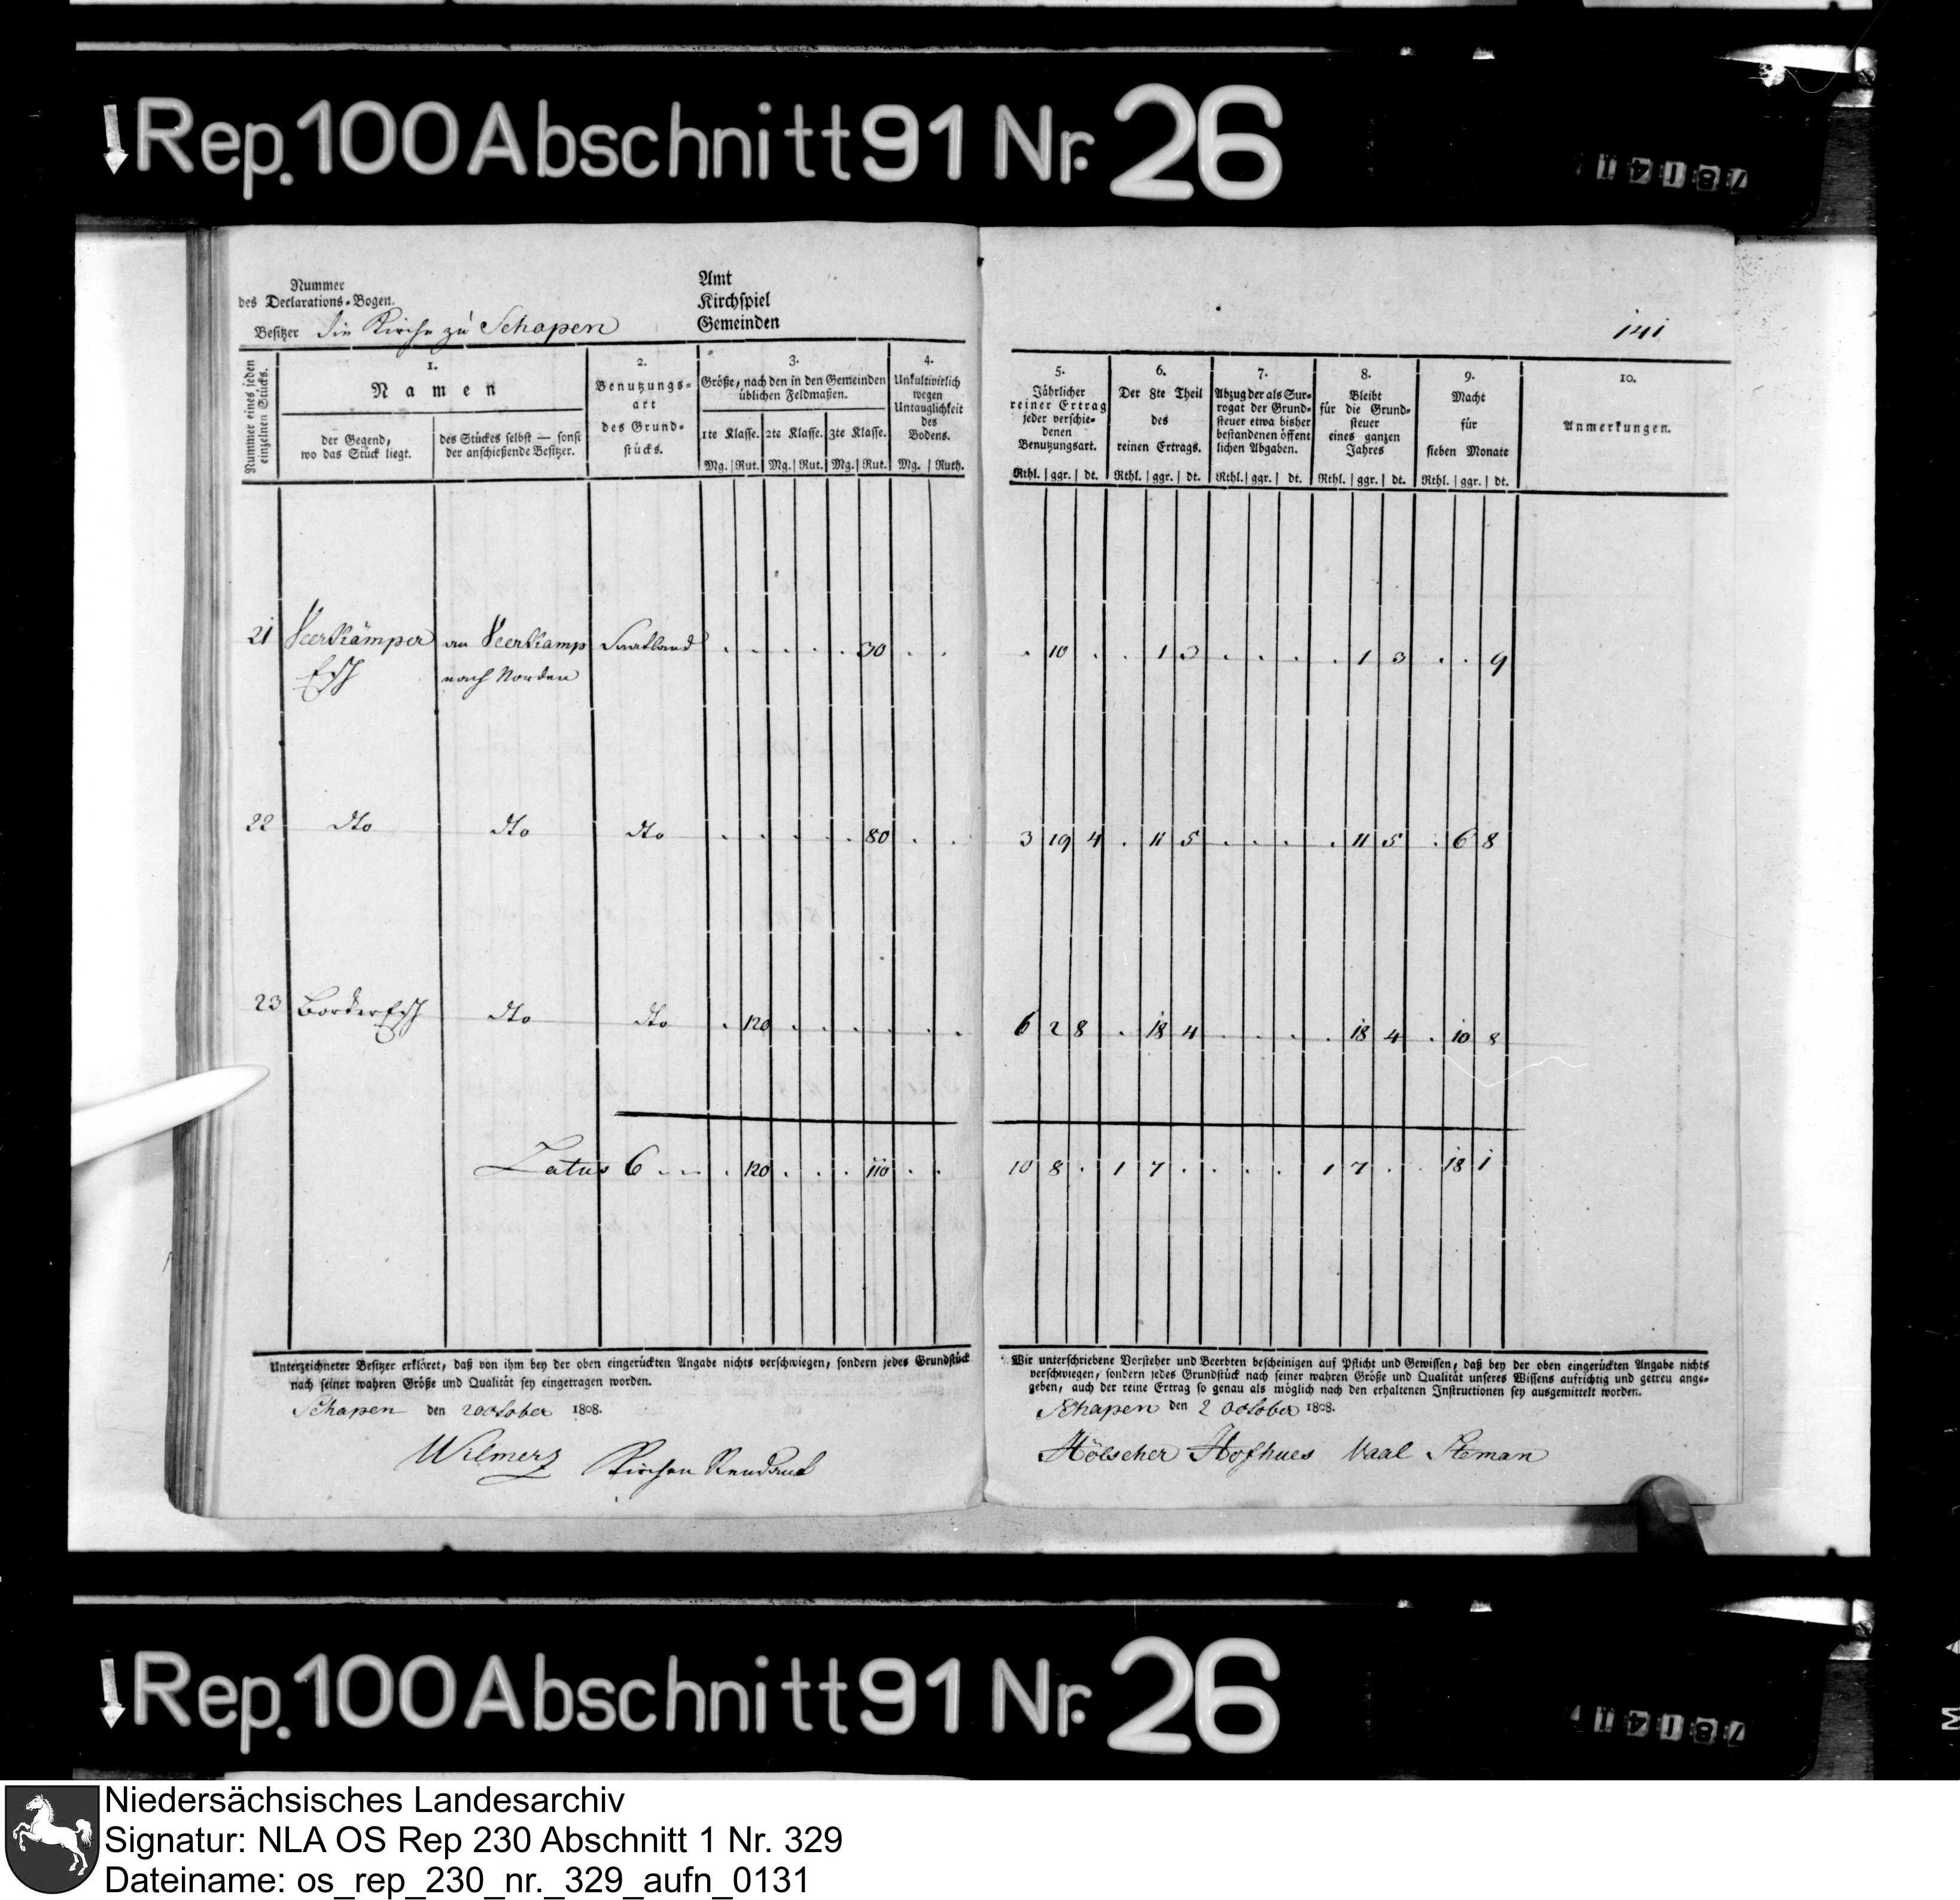 Rep. 100 Abschnitt 91 Nr. 26
78141
Nummer
des Declarations-Bogen.
Besitzer die Kirche zu Schapen
Amt
Kirchspiel
Gemeinden
141
Nummer eines jeden einzelnen Stücks.
1.
Namen
der Gegend,
wo das Stück liegt.
des Stückes selbst — sonst
der anschießende Besitzer.
2.
Benutzungs-
art
des Grund-
stücks.
3.
Größe, nach den in den Gemeinden
üblichen Feldmaßen.
1te Klasse. 2te Klasse. 3te Klasse.
Mg. Rut. Mg. Rut. Mg. Rut.
4.
Unkultivirlich
wegen
Untauglichkeit
des
Bodens.
Mg. Ruth.
5.
Jährlicher
reiner Ertrag
jeder verschie-
denen
Benutzungsart.
Rthl. ggr. dt.
6.
Der 8te Theil
des
reinen Ertrags.
Rthl. ggr. dt.
7.
Abzug der als Sur-
rogat der Grund-
steuer etwa bisher
bestandenen öffent
lichen Abgaben.
Rthl. ggr. dt.
8.
Bleibt
für die Grund-
steuer
eines ganzen
Jahres
Rthl. ggr. dt.
9.
Macht
für
sieben Monate
Rthl. ggr. dt.
10.
Anmerkungen.
21 Veerkämper an Veerkamp Saatland . . . . . 30 . . . 10 . . 1 3 . . . . 1 3 . . 9
Esch nach Norden
22 dto dto dto . . . . . 80 . . 3 19 4 . 11 5 . . . . 11 5 . 6 8
23 Border Esch dto dto . 120 . . . . . . 6 2 8 . 18 4 . . . . 18 4 . 10 8
Latus 6 . . . . 120 . . . 110 . . 10 8 . 1 7 . . . . 1 7 . . 18 1
Unterzeichneter Besitzer erkläret, daß von ihm bey der oben eingerückten Angabe nichts verschwiegen, sondern jedes Grundstück
nach seiner wahren Größe und Qualität sey eingetragen worden.
Schapen den 2 October 1808.
Wilmerz Kirchen Rendant
Wir unterschriebene Vorsteher und Beerbten bescheinigen auf Pflicht und Gewissen, daß bey der oben eingerückten Angabe nichts
verschwiegen, sondern jedes Grundstück nach seiner wahren Größe und Qualität unseres Wissens aufrichtig und getreu ange-
geben, auch der reine Ertrag so genau als möglich nach den erhaltenen Instructionen sey ausgemittelt worden.
Schapen den 2 October 1808.
Hölscher Hofhues Vaal Steman
Rep. 100 Abschnitt 91 Nr. 26
78141
M
Niedersächsisches Landesarchiv
Signatur: NLA OS Rep 230 Abschnitt 1 Nr. 329
Dateiname: os_rep_230_nr._329_aufn_0131